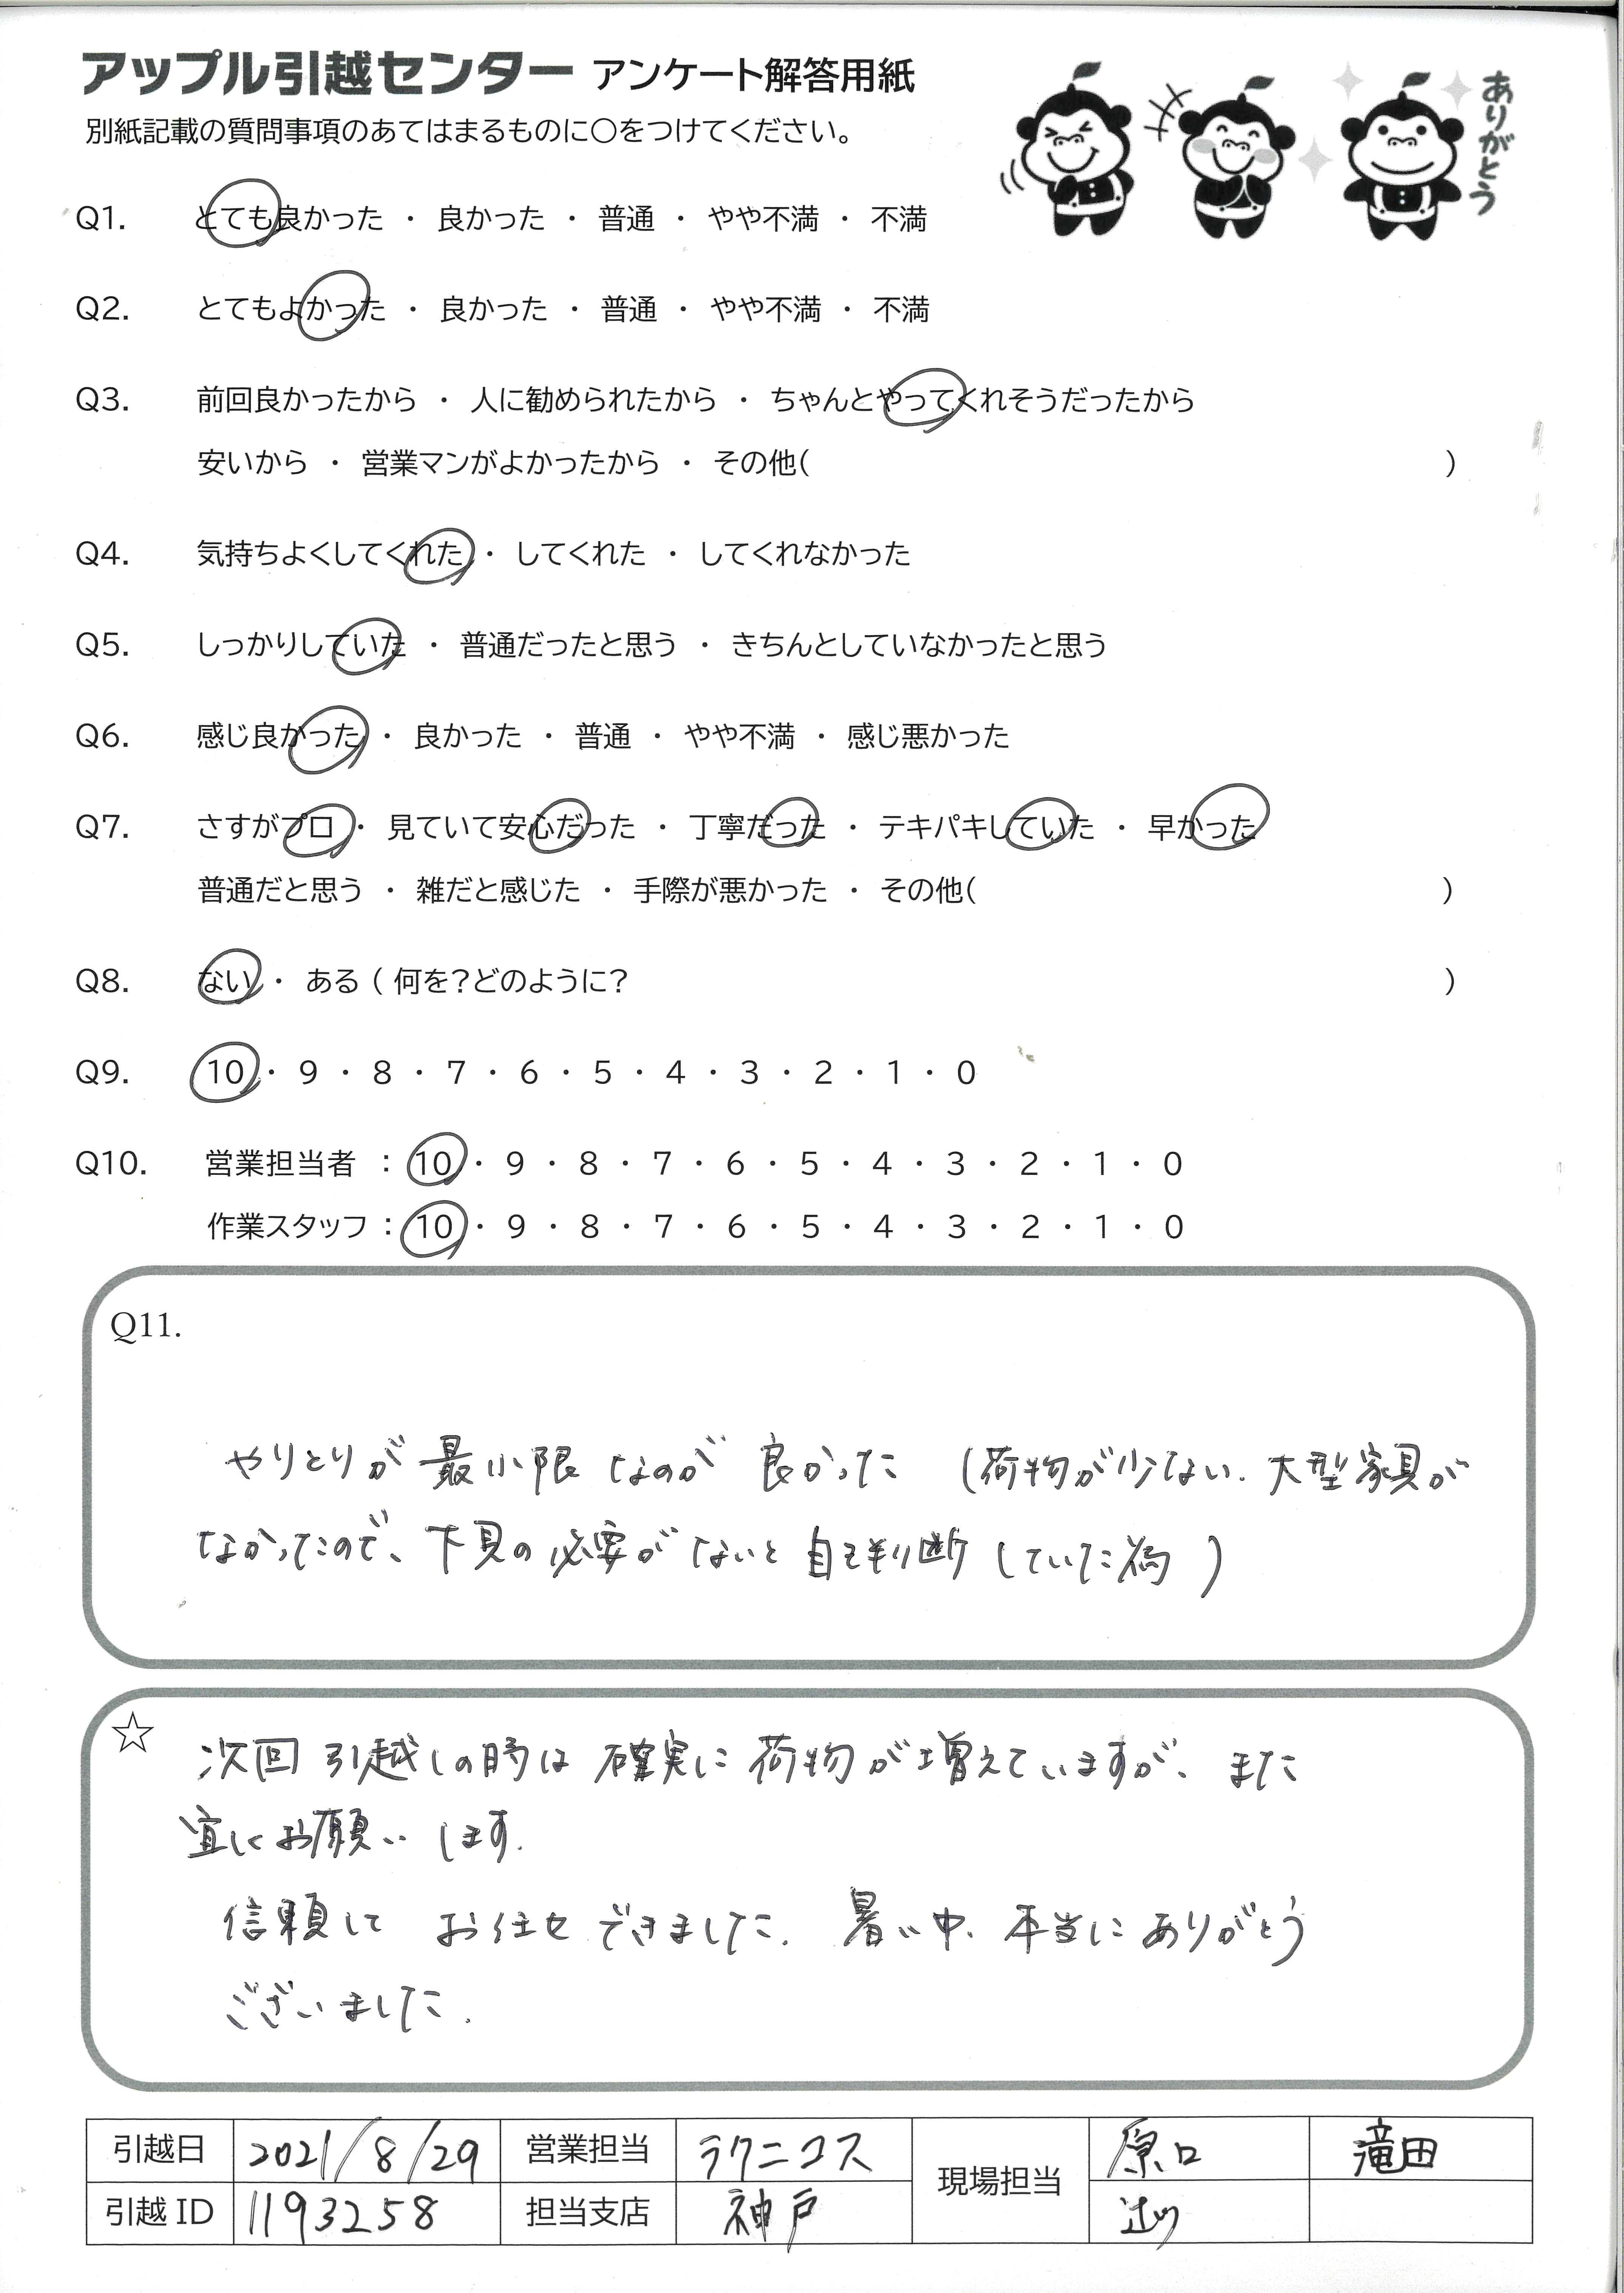 アップル引越センター アンケート解答用紙
別紙記載の質問事項のあてはまるものに○をつけてください。
ありがとう
Q1. とても良かった ・ 良かった ・ 普通 ・ やや不満 ・ 不満
Q2. とてもよかった ・ 良かった ・ 普通 ・ やや不満 ・ 不満
Q3. 前回良かったから ・ 人に勧められたから ・ ちゃんとやってくれそうだったから
安いから ・ 営業マンがよかったから ・ その他( )
Q4. 気持ちよくしてくれた ・ してくれた ・ してくれなかった
Q5. しっかりしていた ・ 普通だったと思う ・ きちんとしていなかったと思う
Q6. 感じ良かった ・ 良かった ・ 普通 ・ やや不満 ・ 感じ悪かった
Q7. さすがプロ ・ 見ていて安心だった ・ 丁寧だった ・ テキパキしていた ・ 早かった
普通だと思う ・ 雑だと感じた ・ 手際が悪かった ・ その他( )
Q8. ない ・ ある ( 何を?どのように? )
Q9. 10 ・ 9 ・ 8 ・ 7 ・ 6 ・ 5 ・ 4 ・ 3 ・ 2 ・ 1 ・ 0
Q10. 営業担当者 : 10 ・ 9 ・ 8 ・ 7 ・ 6 ・ 5 ・ 4 ・ 3 ・ 2 ・ 1 ・ 0
作業スタッフ : 10 ・ 9 ・ 8 ・ 7 ・ 6 ・ 5 ・ 4 ・ 3 ・ 2 ・ 1 ・ 0
Q11.
やりとりが最小限なのが良かった (荷物が少ない、大型家具が
なかったので、下見の必要がないと自己判断していた為)
☆ 次回引越しの時は確実に荷物が増えていますが、また
宜しくお願いします。
信頼して お任せできました。暑い中、本当にありがとう
ございました。
引越日 2021/8/29 営業担当 ラクニコス 現場担当 原口 滝田
引越 ID 1193258 担当支店 神戸